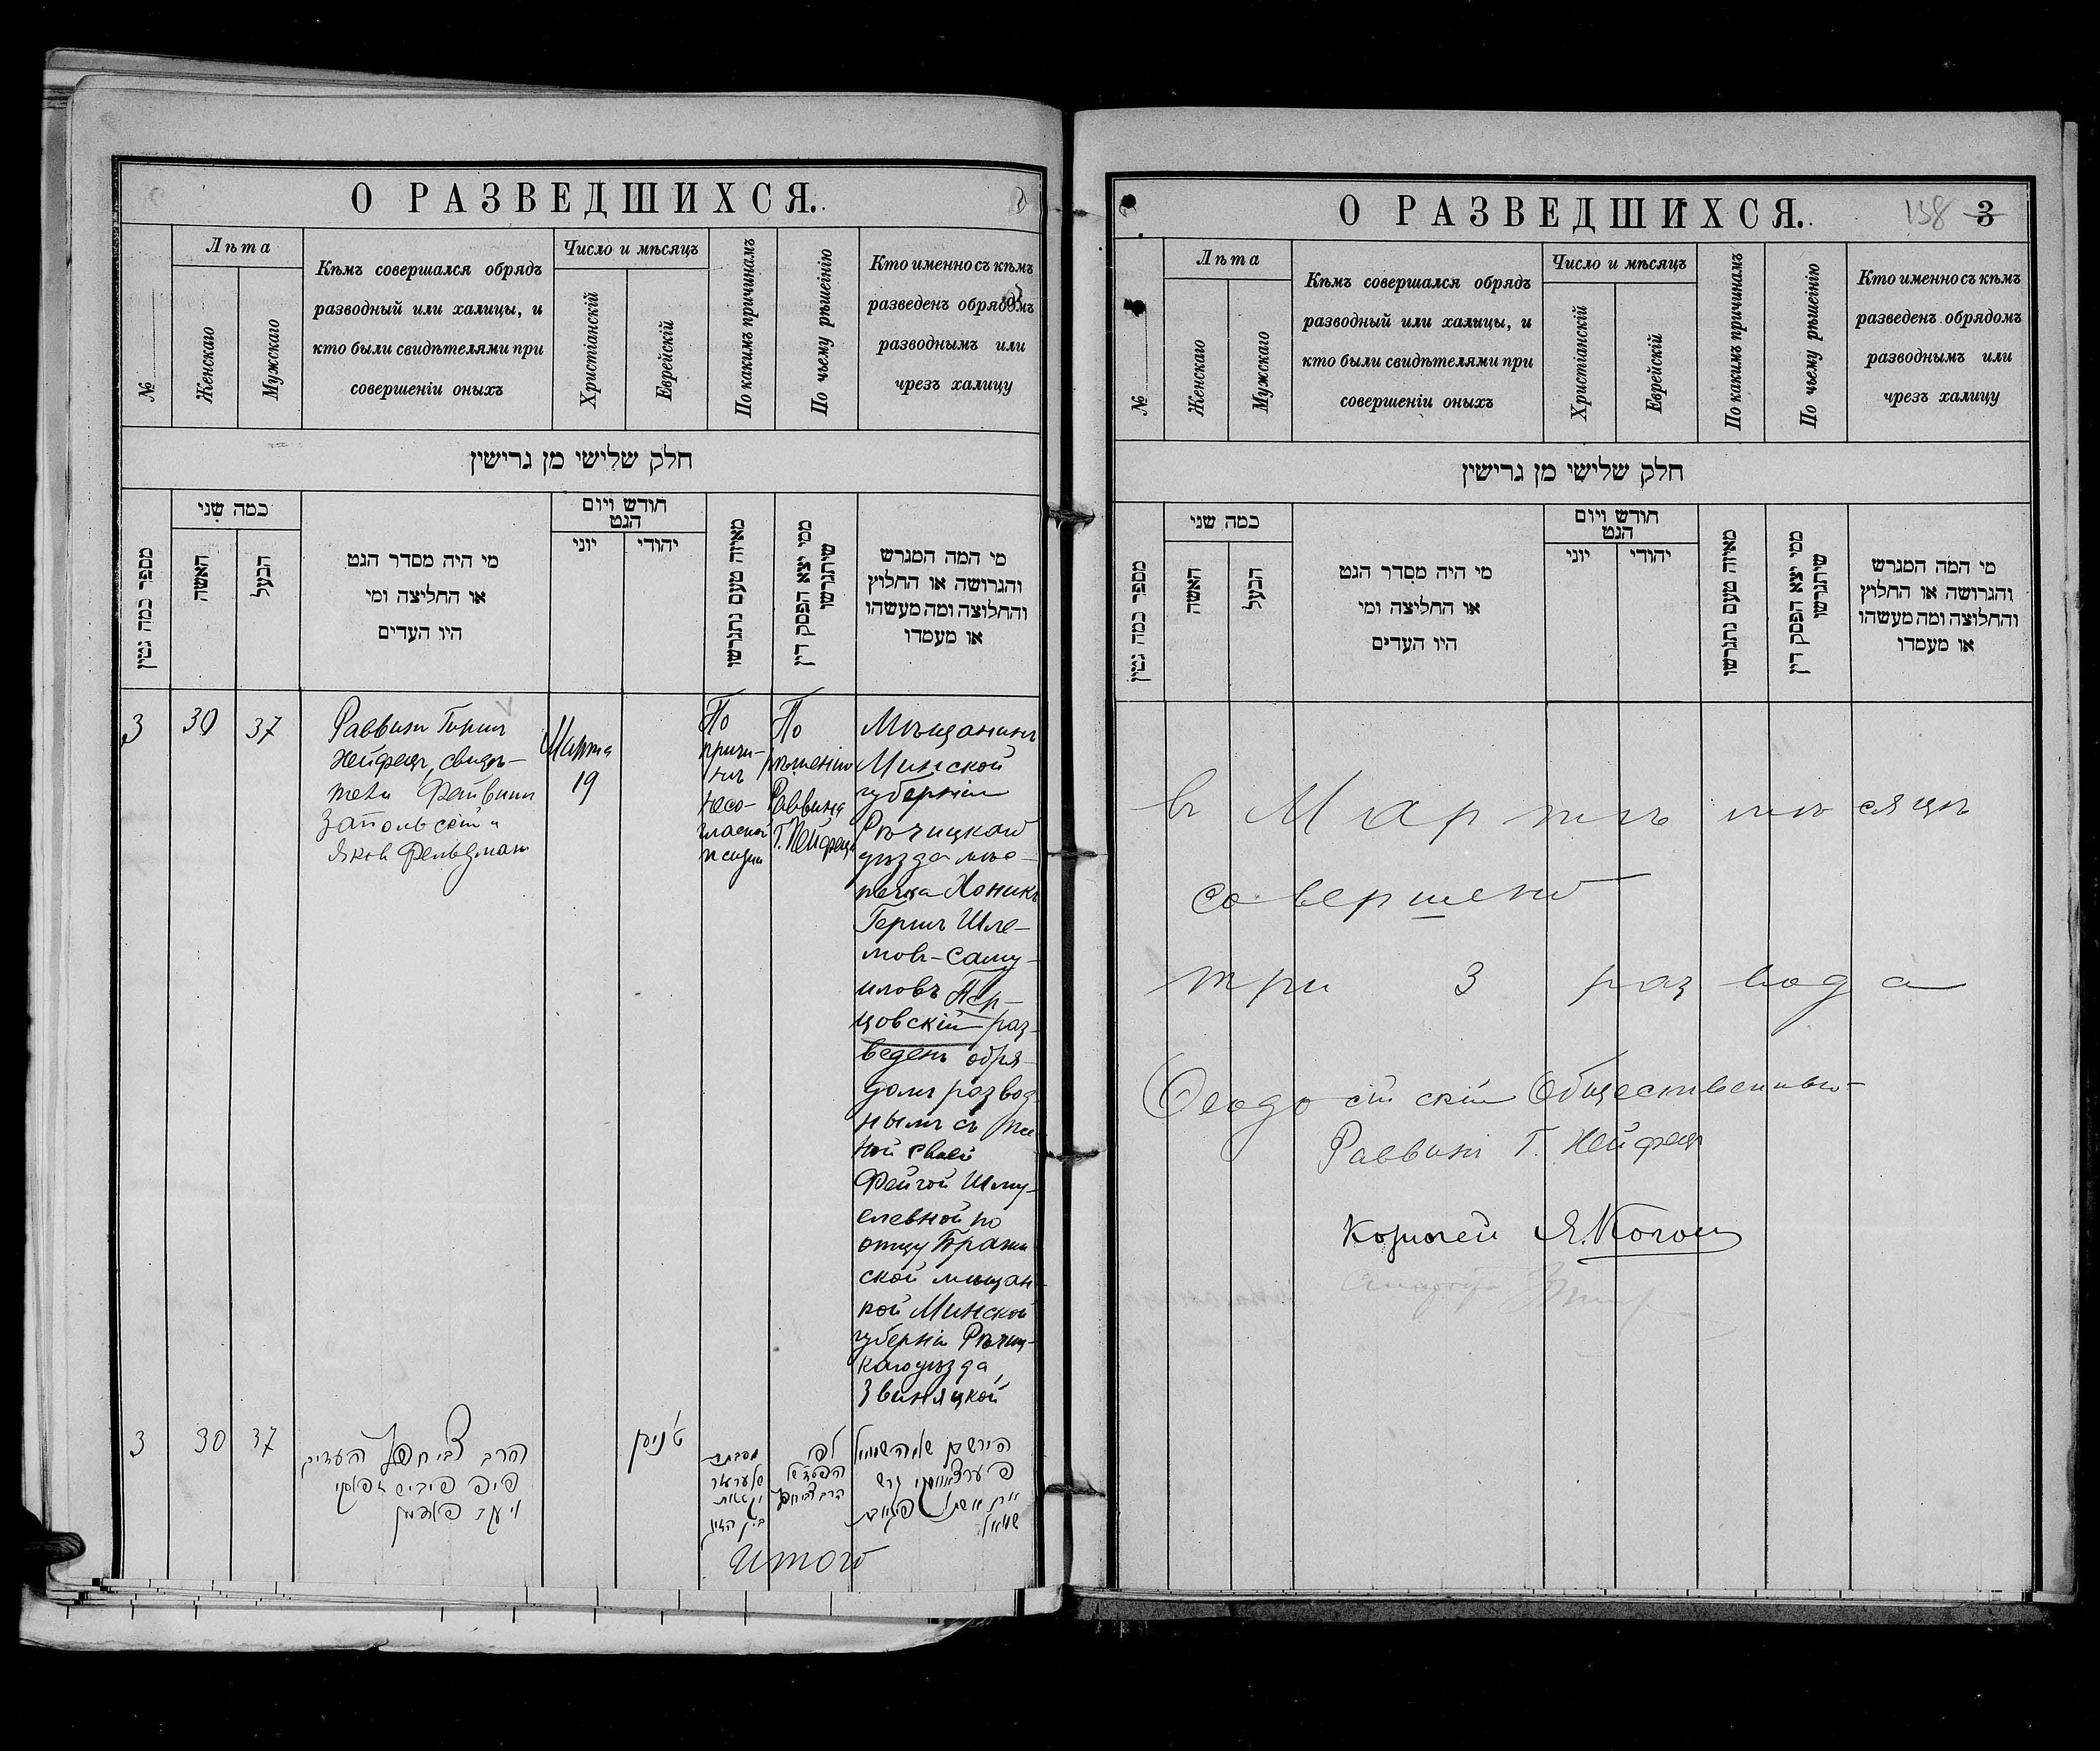 О РАЗВЕДШИХСЯ.
№
Лѣта
Женскаго
Мужскаго
Кѣмъ совершался обрядъ
разводный или халицы, и
кто были свидѣтелями при
совершеніи оныхъ
Число и мѣсяцъ
Христіанскій
Еврейскій
По какимъ причинамъ
По чьему рѣшенію
Кто именно съ кѣмъ
разведенъ обрядомъ
разводнымъ или
чрезъ халицу
חלק שלישי מן גרישין
מספר כמה גטין
כמה שני
האשה
הבעל
מי היה מסדר הגט
או החליצה ומי
היו העדים
חודש ויום
הגט
יוני
יהודי
מאיזה טעם נתגרשו
ממי יצא הפסק דין
שיתגרשו
מי המה המגרש
והגרושה או החלוץ
והחלוצה ומה מעשהו
או מעמדו
3
30
37
Раввинъ Гершъ
Нейфецъ, свидѣ-
тели Файвишъ
Запольскій и
Яковъ Фельдманъ
Марта
19
По
причи-
нѣ
несо-
гласной
жизни
По
рѣшенію
Раввина
Г. Нейфеца
Мѣщанинъ
Минской
губерніи
Рѣчицкаго
уѣзда мѣс-
течка Хоникъ
Гершъ Шле-
мовъ-Саму-
иловъ Пер-
цовскій раз-
веденъ обря-
домъ развод-
нымъ съ же-
ной своей
Фейгой Шму-
елевной по
отцу
ской мѣщан-
кой Минской
губерніи Рѣчиц-
каго уѣзда
Звиняцкой
3
30
37
הרב צבי חפץ העדים
זאפאלסקי
ט׳ ניסן
לפי
שמואל
Итого
О РАЗВЕДШИХСЯ.
138 3
№
Лѣта
Женскаго
Мужскаго
Кѣмъ совершался обрядъ
разводный или халицы, и
кто были свидѣтелями при
совершеніи оныхъ
Число и мѣсяцъ
Христіанскій
Еврейскій
По какимъ причинамъ
По чьему рѣшенію
Кто именно съ кѣмъ
разведенъ обрядомъ
разводнымъ или
чрезъ халицу
חלק שלישי מן גרישין
מספר כמה גטין
כמה שני
האשה
הבעל
מי היה מסדר הגט
או החליצה ומי
היו העדים
חודש ויום
הגט
יוני
יהודי
מאיזה טעם נתגרשו
ממי יצא הפסק דין
שיתגרשו
מי המה המגרש
והגרושה או החלוץ
והחלוצה ומה מעשהו
או מעמדו
въ Мартѣ мѣсяцѣ
совершено
три 3 развода
Ѳеодосійскій Общественный
Раввинъ Г. Нейфецъ
Казначей Я. Коганъ